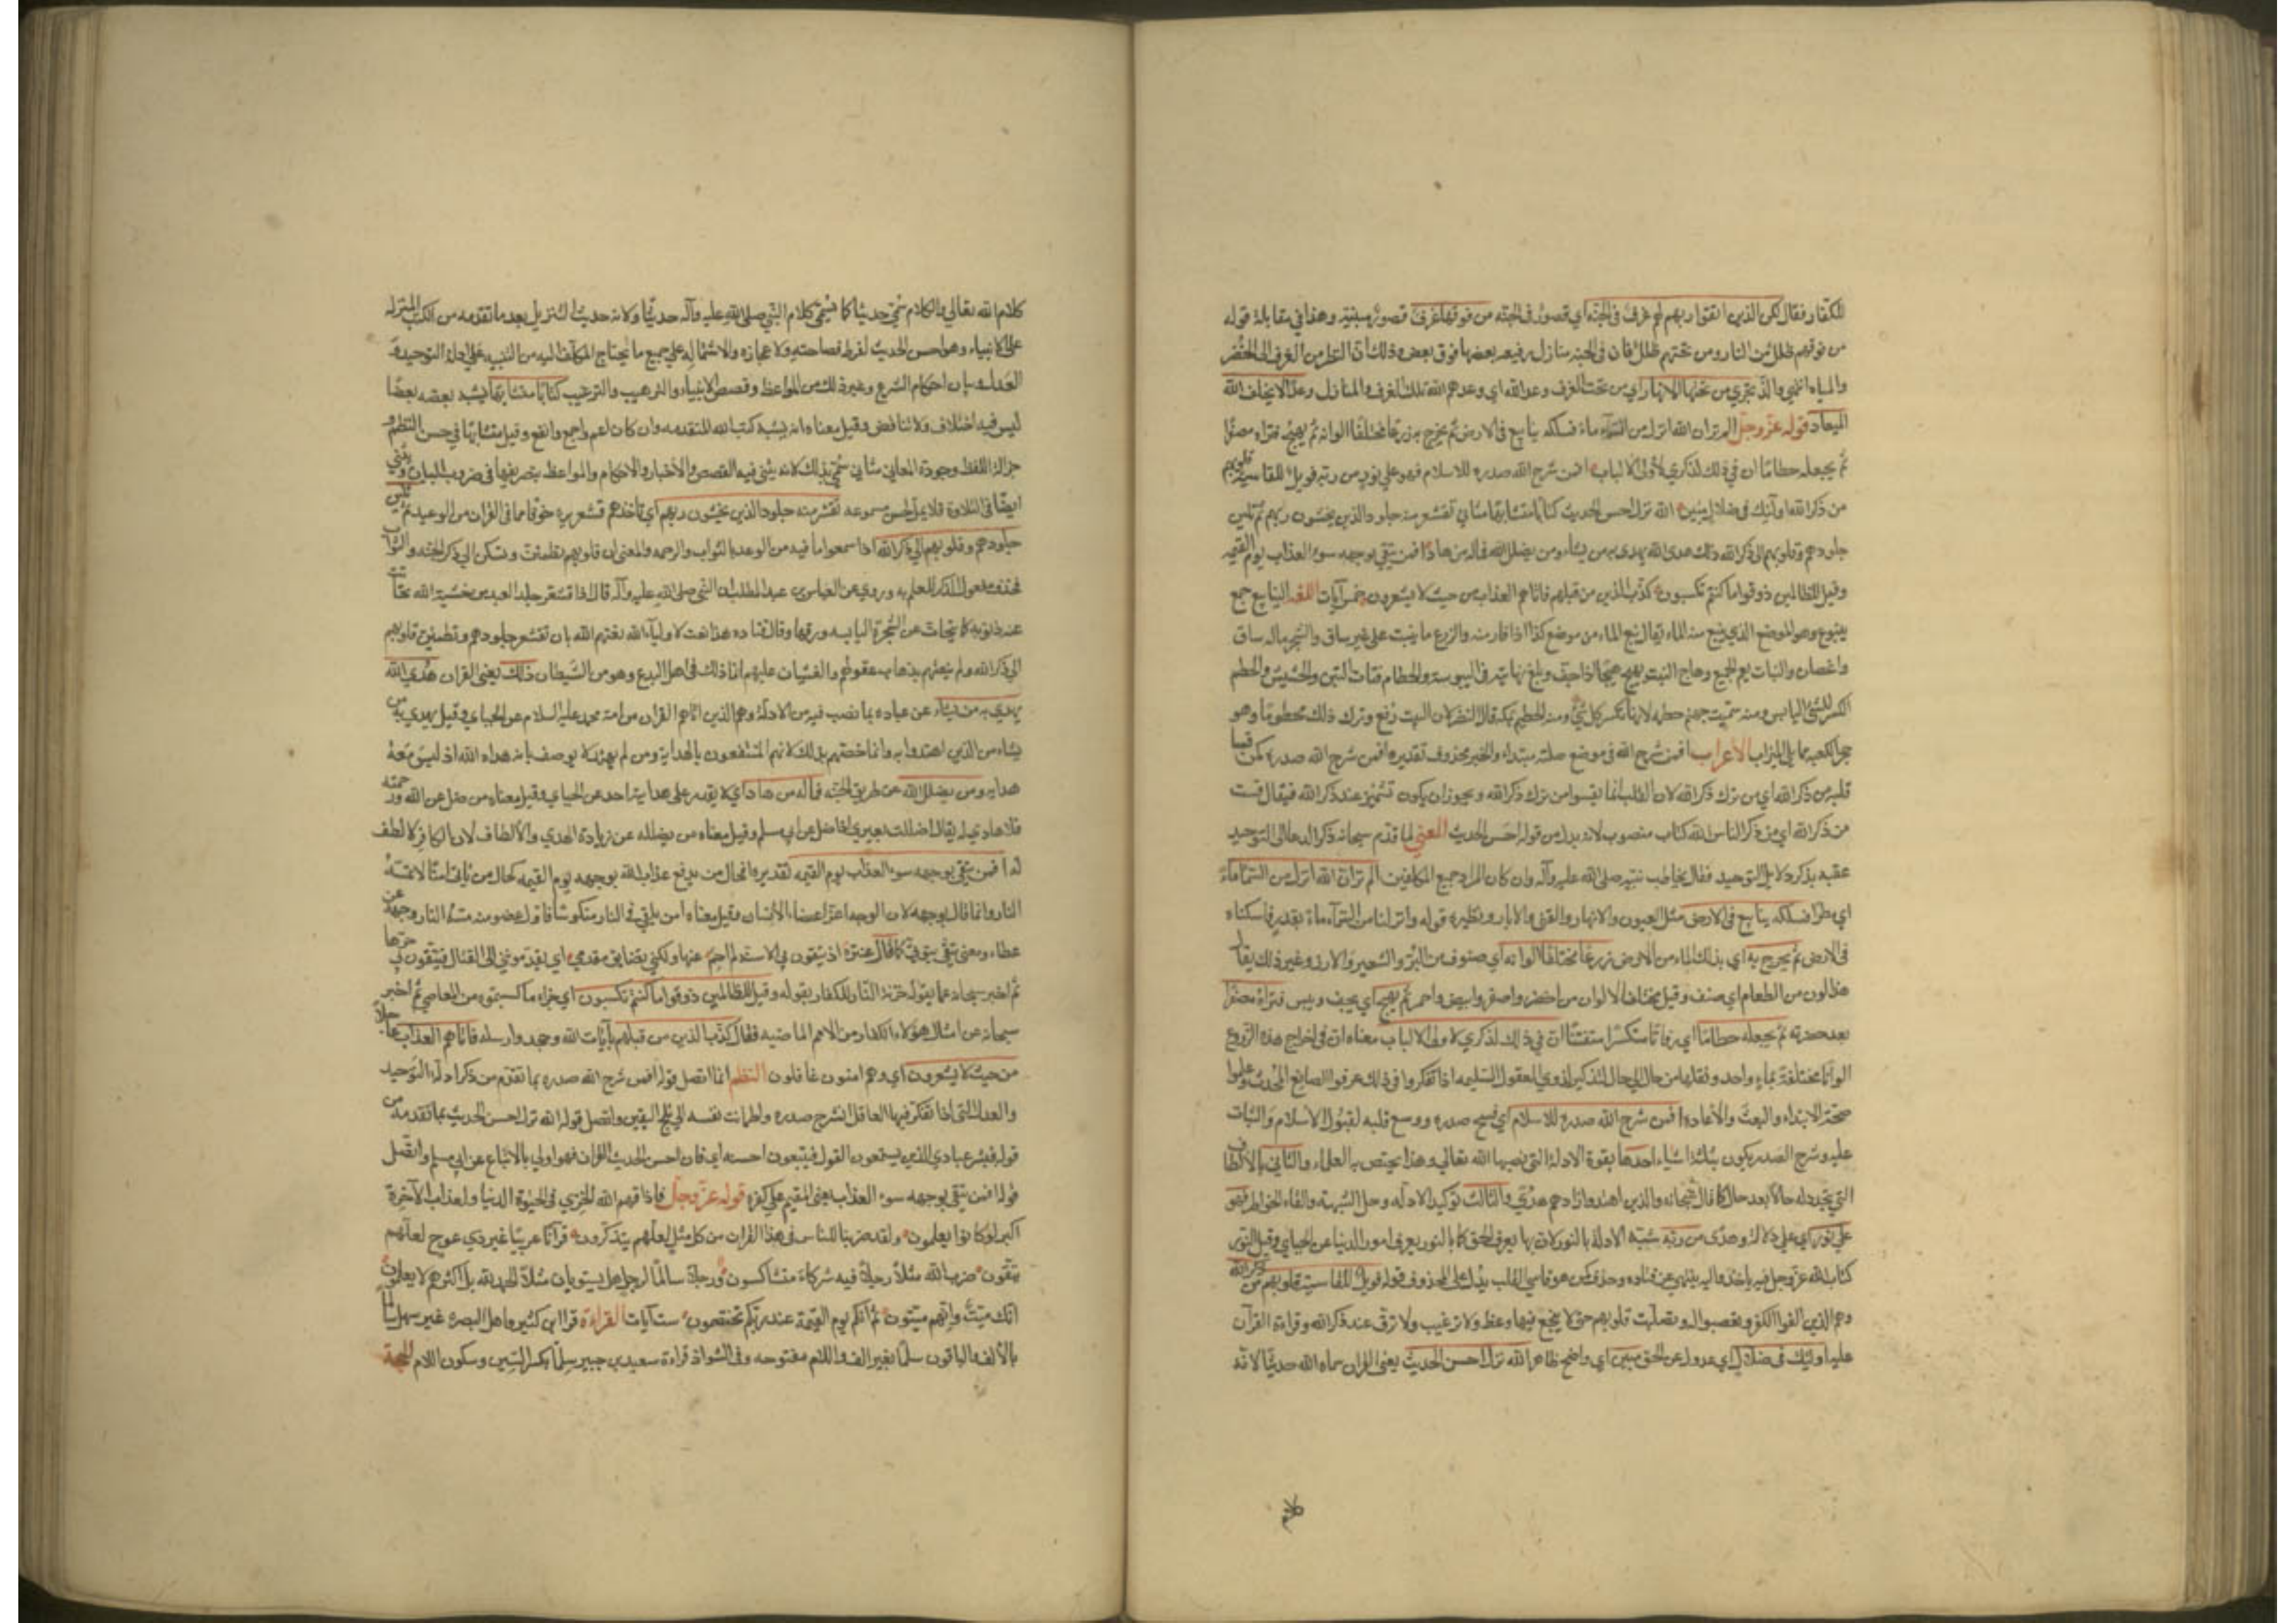 للكفار فقال لكن الذين اتقوا ربهم لهم غرف في الجنة اي قصور في الجنه من فوقها غرف قصور مبنية وهذا في مقابلة قوله
من فوقهم ظلل من النار ومن تحتهم ظلل فان في الجنه منازل رفيعه بعضها فوق بعض وذلك ان النظر من الغرف الى الخضر
والمياه اشهى والذ تجري من تحتها الانهار اي من تحت الغرف وعد الله اي وعدهم الله تلك الغرف والمنازل وعدا لا يخلف الله
الميعاد قوله عز وجل الم تر ان الله انزل من السماء ماء فسلكه ينابيع في الارض ثم يخرج به زرعا مختلفا الوانه ثم يهيج فتراه مصفرا
ثم يجعله حطاما ان في ذلك لذكري لأولي الالباب افمن شرح الله صدره للاسلام فهو على نور من ربه فويل للقاسية قلوبهم
من ذكر الله اولئك في ضلال مبين الله نزل احسن الحديث كتابا متشابها مثاني تقشعر منه جلود الذين يخشون ربهم ثم تلين
جلودهم وقلوبهم الى ذكر الله ذلك هدى الله يهدي به من يشاء ومن يضلل الله فما له من هاد افمن يتقي بوجهه سوء العذاب يوم القيمه
وقيل للظالمين ذوقوا ما كنتم تكسبون كذب الذين من قبلهم فاتاهم العذاب من حيث لا يشعرون خمس آيات اللغه الينابيع جمع
ينبوع وهو الموضع الذي ينبع منه الماء يقال نبع الماء من موضع كذا اذا فار منه والزرع ما ينبت على غير ساق والشجر ماله ساق
واغصان والنبات يعم الجميع وهاج النبت يهيج هيجا اذا جف وبلغ نهايته في اليبوسة والحطام فتات التبن والحشيش والحطم
الكسر للشئ اليابس ومنه سميت جهنم حطمه لانها تكسر كل شئ ومنه الحطيم بمكه قال النضر لان البيت رفع وترك ذلك محطوما وهو
حجر الكعبه مما يلي الميزاب الأعراب افمن شرح الله في موضع صلته مبتداء والخبر محذوف تقديره افمن شرح الله صدره كمن قسا
قلبه من ذكر الله اي من ترك ذكر الله لان القلب انما يقسوا من ترك ذكر الله ويجوز ان يكون تشمئز عند ذكر الله فيقال قست
من ذكر الله اي من ذكر الناس الله كتاب منصوب لانه بدل من قوله احسن الحديث المعني لما قدم سبحانه ذكر الدعا الى التوحيد
عقبه بذكر دلايل التوحيد فقال يخاطب نبيه صلى الله عليه وآله وان كان المراد جميع المكلفين الم تر ان الله انزل من السماء ماء
اي مطرا فسلكه ينابيع في الارض مثل العيون والانهار والقنى والابار ونظيره قوله وانزلنا من السماء ماء بقدر فاسكناه
في الارض ثم يخرج به اي بذلك الماء من الارض زرعا مختلفا الوانه اي صنوف من البر والشعير والارز وغير ذلك يقال
هذا لون من الطعام اي صنف وقيل مختلف الالوان من اخضر واصفر وابيض واحمر ثم يهيج اي يجف وييبس فتراه مصفرا
بعد خضرته ثم يجعله حطاما اي رفاتا متكسرا متفتتا ان في ذلك لذكري لاولي الالباب معناه ان في اخراج هذه الزروع
الوانا مختلفة بماء واحد ونقلها من حال الى حال لتذكير لذوي العقول السليمه اذا تفكروا في ذلك عرفوا الصانع المحدث وعلموا
صحة الابتداء والبعث والأعاده افمن شرح الله صدره للاسلام اي فسح صدره ووسع قلبه لقبول الاسلام والثبات
عليه وشرح الصدر يكون بثلثة اشياء احدها بقوة الادلة التي نصبها الله تعالى وهذا يختص به العلماء والثاني بالالطاف
التي تتجدد له حالا بعد حال كما قال سبحانه والذين اهتدوا زادهم هدى والثالث بتوكيد الادله وحل الشبهة والقاء الخواطر فهو
على نور اي على دلالة وهدى من ربه شبه الادلة بالنور لان بها يعرف الحق كما بالنور يعرف امور الدنيا عن الجبائي وقيل النور
كتاب الله عز وجل فيه ياخذ واليه ينتهي عن قتاده وحذف كمن هو قاسي القلب يدل على المحذوف قوله فويل للقاسية قلوبهم من ذكر الله
وهم الذين الفوا الكفر وتعصبوا له وتصلبت قلوبهم حتى لا ينجع فيها وعظ ولا ترغيب ولا ترق عند ذكر الله وقراءة القرآن
عليه اولئك في ضلال اي عدول عن الحق مبين اي واضح ظاهر الله نزل احسن الحديث يعني القران سماه الله حديثا لانه
كلام الله تعالى والكلام سمي حديثا كما يسمى كلام النبي صلى الله عليه وآله حديثا ولانه حديث التنزيل بعد ما تقدمه من الكتب المنزله
على الانبياء وهو احسن الحديث لفرط فصاحته ولا عجازه والاشتماله على جميع ما يحتاج المكلف اليه من التنبيه على ادلة التوحيد و
العدل وبيان احكام الشرع وغير ذلك من المواعظ وقصص الانبياء والترهيب والترغيب كتابا متشابها يشبه بعضه بعضا
ليس فيه اختلاف ولا تناقض وقيل معناه انه يشبه كتب الله المتقدمه وان كان اعم واجمع وانفع وقيل متشابها في حسن النظم و
جزالة اللفظ وجودة المعاني مثاني سمي بذلك لانه يثنى فيه القصص والأخبار والاحكام والمواعظ بتصريفها في ضروب البيان ويثني
ايضا في التلاوة فلا يمل لحسن مسموعه تقشعر منه جلود الذين يخشون ربهم اي تاخذهم قشعريرة خوفا مما في القران من الوعيد ثم تلين
جلودهم وقلوبهم الى ذكر الله اذا سمعوا ما فيه من الوعد بالثواب والرحمه والمعنى ان قلوبهم تطمئن وتسكن الى ذكر الجنه والثواب
فحذف مفعول الذكر للعلم به وروي عن العباس بن عبد المطلب ان النبي صلى الله عليه وآله قال اذا اقشعر جلد العبد من خشية الله تحاتت
عنه ذنوبه كما يتحات عن الشجرة اليابسه ورقها وقال قتاده هذا نعت لاولياء الله نعتهم الله بان تقشعر جلودهم وتطمئن قلوبهم
الى ذكر الله ولم ينعتهم بذهاب عقولهم والغشيان عليهم انما ذلك في اهل البدع وهو من الشيطان ذلك يعني القران هدى الله
يهدي به من يشاء من عباده بما نصب فيه من الادلة وهم الذين اتاهم القران من امة محمد عليه السلام عن الجبائي وقيل يهدي به من
يشاء من الذين اهتدوا به وانما خصهم بذلك لانهم المنتفعون بالهداية ومن لم يهتد لا يوصف بانه هداه الله اذ ليس معه
هدايه ومن يضلل الله عن طريق الجنه فما له من هاد اي لا يقدر على هدايته احد عن الجبائي وقيل معناه من ضل عن الله ورحمته
فلا هادي له يقال اضللت بعيري اذا ضل عن ابي مسلم وقيل معناه من يضلله عن زيادة الهدي والألطاف لان الكافر لا لطف
له افمن يتقي بوجهه سوء العذاب يوم القيمه تقديره افحال من يدفع عذاب الله بوجهه يوم القيمه كحال من ياتي امنا لا تمسه
النار وانما قال بوجهه لان الوجه اعز اعضاء الانسان وقيل معناه امن يلقى في النار منكوسا فاول عضو منه مسته النار وجهه عن
عطاء ومعنى يتقي يتوقى كما قال عنترة اذ يتقون بي الاسنة لم اخم عنها ولكني تضايق مقدمي اي يقدمونني الى القتال فيتقون بي حرها
ثم اخبر سبحانه عما يقوله خزنة النار للكفار بقوله وقيل للظالمين ذوقوا ما كنتم تكسبون اي جزاء ما كسبتموه من المعاصي ثم اخبر
سبحانه عن امثال هؤلاء الكفار من الامم الماضيه فقال كذب الذين من قبلهم بآيات الله وجحدوا رسله فاتاهم العذاب عاجلا
من حيث لا يشعرون اي وهم امنون غافلون النظم انما اتصل قوله افمن شرح الله صدره بما تقدم من ذكر ادلة التوحيد
والعدل التي اذا تفكر فيها العاقل انشرح صدره واطمانت نفسه الى ثلج اليقين واتصل قوله الله نزل احسن الحديث بما تقدمه من
قوله فبشر عبادي الذين يستمعون القول فيتبعون احسنه اي فان احسن الحديث القران فهو اولى بالاتباع عن ابي مسلم واتصل
قوله افمن يتقي بوجهه سوء العذاب يعني المقيم على كفره قوله عز وجل فاذاقهم الله الخزي في الحيوة الدنيا ولعذاب الآخرة
اكبر لو كانوا يعلمون ولقد ضربنا للناس في هذا القران من كل مثل لعلهم يتذكرون قرآنا عربيا غير ذي عوج لعلهم
يتقون ضرب الله مثلا رجلا فيه شركاء متشاكسون ورجلا سالما لرجل هل يستويان مثلا الحمد لله بل اكثرهم لا يعلمون
انك ميت وانهم ميتون ثم انكم يوم القيمة عند ربكم تختصمون ست آيات القراءة قرا ابن كثير واهل البصره غير سهل سالما
بالألف والباقون سلما بغير الف واللام مفتوحه وفي الشواذ قراءة سعيد بن جبير سلما بكسر السين وسكون اللام الحجة